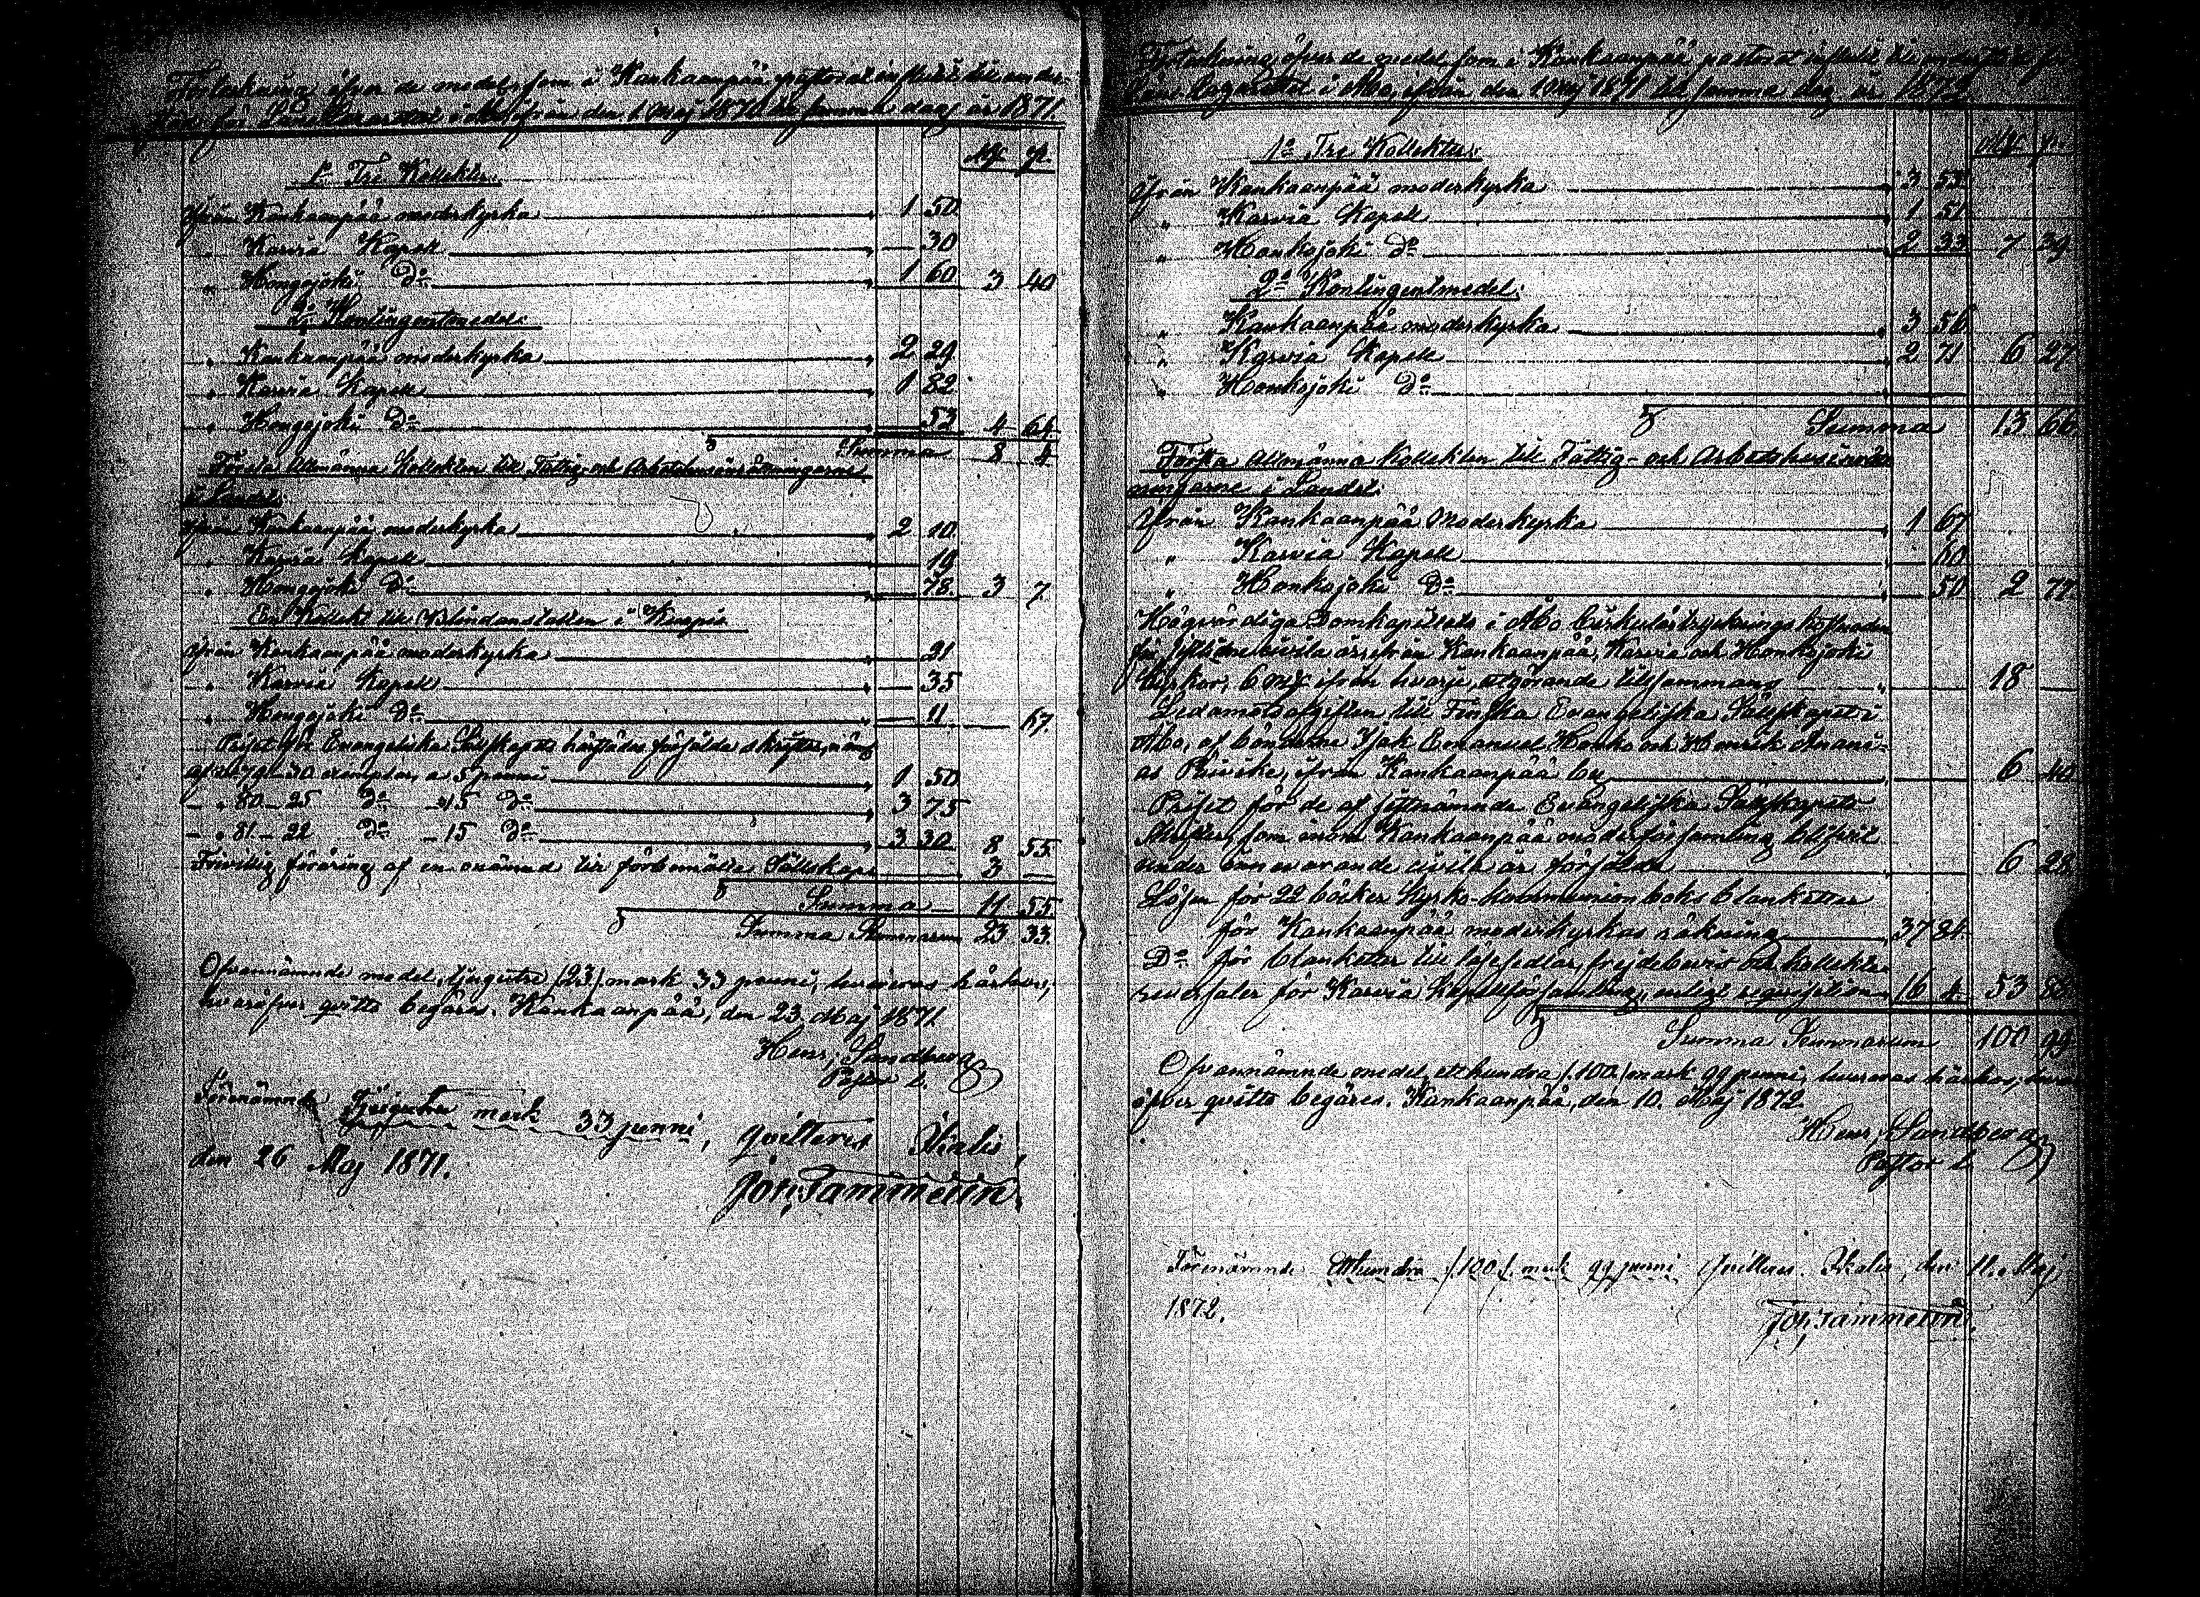 Förteckning öfver de medel, som i Kankaanpää pastorat influtit till under-
för Läns Lazarettet i Åbo ifrån den 1 Maj 1870 till samma dag år 1871.
Mk p.
1o Tre Kollekter.
Ifrån Kankaanpää moderkyrka 1 50
" Karvia Kapell — 30
" Hongojoki Do 1 60 3 40
2o Kontingentmedel:
" Kankaanpää moderkyrka 2 29
" Karvia Kapell 1 82
" Hongojoki Do 53 4 64
Summa 8 4
Första Allmänna Kollekten till Fattig- och Arbetshusinrättningarne
i Landet.
Ifrån Kankaanpää moderkyrka 2 10
" Karvia Kapell 19
" Hongojoki Do 78 3 7
En Kollekt till Blindanstalten i Kuopio
Ifrån Kankaanpää moderkyrka 21
" Karvia Kapell 35
" Hongojoki Do 11 — 67
Priset för Evangeliska Sällskapets härstädes försålda skrifter, näml.
af No 79 – 30 exemplar, a 5 penni 1 50
" 80 – 25 Do – 15 Do 3 75
" 81 – 22 Do – 15 Do 3 30 8 55
Frivillig föräring af en onämnd till förbemälde Sällskap 3 —
Summa 11 55
Summa Summarum 23 33
Ofvannämnde medel, tjugutre /23/ mark 33 penni, levereras härhos,
hvaröfver qvitto begäres. Kankaanpää, den 23 Maj 1871
Henr. Sandberg
Pastor l.
Förenämnde Tjugutre mark 33 penni, qvitteras Ikalis,
den 26 Maj 1871.
Joh. Tammelin
Förteckning öfver de medel, som i Kankaanpää pastorat influtit till
Läns Lazarettet i Åbo, ifrån den 1 Maj 1871 till samma dag år 1872
Mk p.
1o Tre Kollekter:
Ifrån Kankaanpää moderkyrka 3 55
" Karvia Kapell 1 51
" Honkojoki Do 2 33 7 39
2o Kontingentmedel:
" Kankaanpää moderkyrka 3 56
" Karvia Kapell 2 71 6 27
" Honkojoki Do
Summa 13 66
Första Allmänna Kollekten till Fattig- och Arbetshusinrätt-
ningarne i Landet.
Ifrån Kankaanpää Moderkyrka 1 67
" Karvia Kapell 60
" Honkojoki Do 50 2 77
Högvördiga Domkapitlets i Åbo Cirkulärtryckningskostnader
för sistl. civila år ifrån Kankaanpää, Karvia och Honkojoki
kyrkor, 6 mk ifrån hvarje, utgörande tillsammans 18 —
Ledamotsafgiften till Finska Evangeliska Sällskapet i
Åbo, af bönderne Isak Emanuel Honko och Henrik Anani-
as ifrån Kankaanpää by 6 40
Priset för de af sistnämnde Evangeliska Sällskapets
skrifter, som inom Kankaanpää moderförsamling blifvit
under innevarande civila år försålda 6 28
Lösen för 22 böcker Kyrko-kommunion boks blanketter
för Kankaanpää moderkyrkas räkning 37 84
Do för blanketter till lösesedlar, frejdebevis och kollekt-
reversaler för Karvia Kapellförsamling, enligt requisition 16 4 53 88
Summa Summarum 100 99
Ofvannämnde medel, etthundra /100/ mark 99 penni, levereras härhos, hvar-
öfver qvitto begäres. Kankaanpää, den 10. Maj 1872
Henr. Sandberg
Pastor l.
Förenämnde Etthundra /100/ mark 99 penni qvitteras. Ikalis, den 11 Maj
1872.
Joh. Tammelin